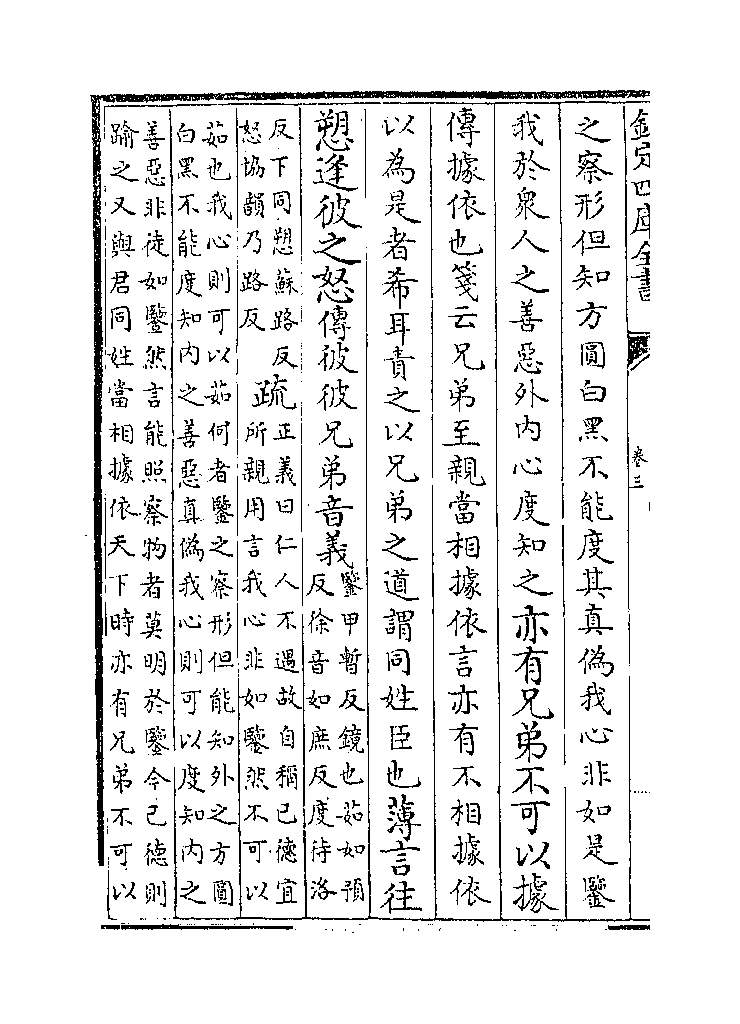 欽定四庫全書
卷三
之察形但知方圓白黑不能度其真偽我心非如是鑒
我於衆人之善惡外内心度知之亦有兄弟不可以據
傳據依也箋云兄弟至親當相據依言亦有不相據依
以為是者希耳責之以兄弟之道謂同姓臣也薄言往
愬逢彼之怒傳彼彼兄弟音義鑒甲暫反鏡也茹如預
反徐音如庶反度待洛
反下同愬蘇路反
怒協韻乃路反
疏正義曰仁人不遇故自稱已德宜
所親用言我心非如鑒然不可以
茹也我心則可以茹何者鑒之察形但能知外之方圓
白黑不能度知内之善惡真偽我心則可以度知内之
善惡非徒如鑒然言能照察物者莫明於鑒今已德則
踰之又與君同姓當相據依天下時亦有兄弟不可以